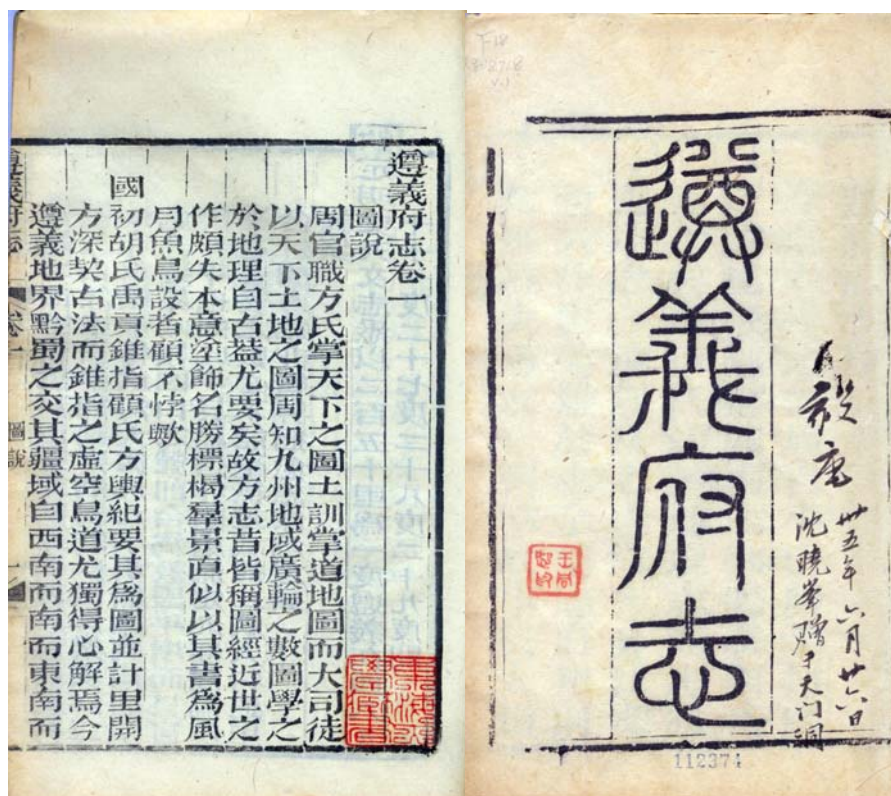 遵義府志
卅五年六月廿六日
沈曉峯贈于天门洞
112374
遵義府志卷一
圖說
周官職方氏掌天下之圖土訓掌道地圖而大司徒
以天下土地之圖周知九州地域廣輪之數圖學之
於地理自古葢尤要矣故方志昔皆稱圖經近世之
作頗失本意塗飾名勝標楬羣景直似以其書爲風
月魚鳥設者顧不悖歟
國初胡氏禹貢錐指顧氏方輿紀要其爲圖並計里開
方深契古法而錐指之虛空鳥道尤獨得心解焉今
遵義地界黔蜀之交其疆域自西南而南而東南而
遵義府志 卷一 圖說 一